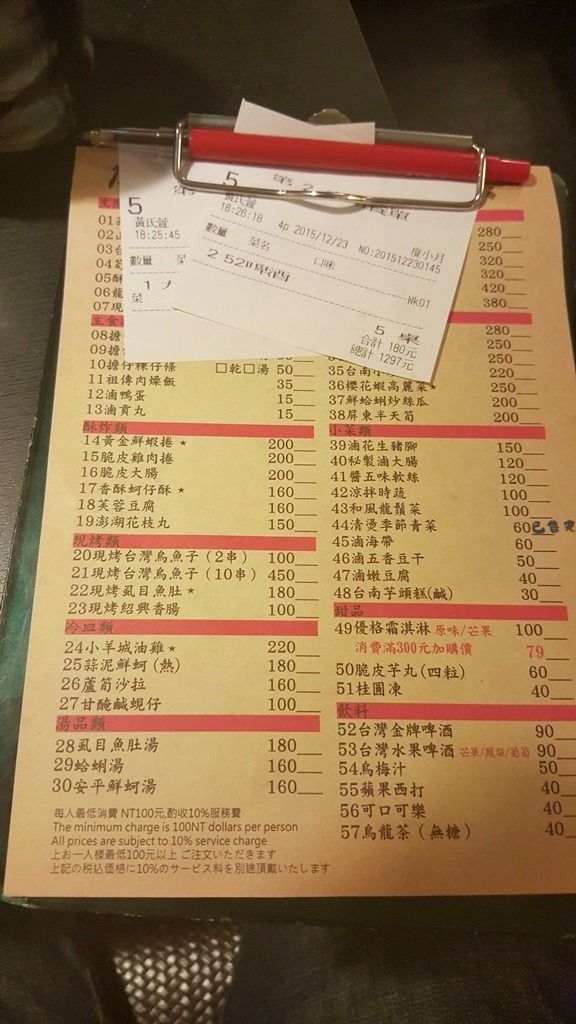 5
黃氏萱
18:25:45
數量
菜
5
第 2
黃氏萱
18:26:18
4p 2015/12/23
度小月
NO:201512230145
數量 菜名 口味
2 52
Wk01
5 桌
合計 180元
總計 1297元
280
250
320
320
420
380
01
02
03
04
05
06
07現
08擔
09擔
10擔仔粿仔條 □乾□湯 50
11祖傳肉燥飯 35
12滷鴨蛋 15
13滷貢丸 15
酥炸類
14黃金鮮蝦捲★ 200
15脆皮雞肉捲 200
16脆皮大腸 200
17香酥蚵仔酥★ 160
18芙蓉豆腐 160
19澎湖花枝丸 150
現烤類
20現烤台灣烏魚子（2串） 100
21現烤台灣烏魚子（10串） 450
22現烤虱目魚肚★ 180
23現烤紹興香腸 100
冷皿類
24小羊城油雞★ 220
25蒜泥鮮蚵(熱) 180
26蘆筍沙拉 160
27甘醃鹹蜆仔 100
湯品類
28虱目魚肚湯 180
29蛤蜊湯 160
30安平鮮蚵湯 160
280
250
35台南小 220
36櫻花蝦高麗菜★ 250
37鮮蛤蜊炒絲瓜 200
38屏東半天筍 200
小菜類
39滷花生豬腳 150
40秘製滷大腸 120
41醬五味軟絲 120
42涼拌時蔬 100
43和風龍鬚菜 100
44清燙季節青菜 60 已售完
45滷海帶 60
46滷五香豆干 50
47滷嫩豆腐 40
48台南芋頭糕(鹹) 30
甜品
49優格霜淇淋 原味/芒果 100
消費滿300元加購價 79
50脆皮芋丸(四粒) 60
51桂圓凍 40
飲料
52台灣金牌啤酒 90
53台灣水果啤酒 芒果/鳳梨/葡萄 90
54烏梅汁 50
55蘋果西打 40
56可口可樂 40
57烏龍茶（無糖） 40
每人最低消費 NT100元,酌收10%服務費
The minimum charge is 100NT dollars per person
All prices are subject to 10% service charge
上お一人様最低100元以上 ご注文いただきます
上記の税込価格に10%のサービス料を別途頂戴いたします